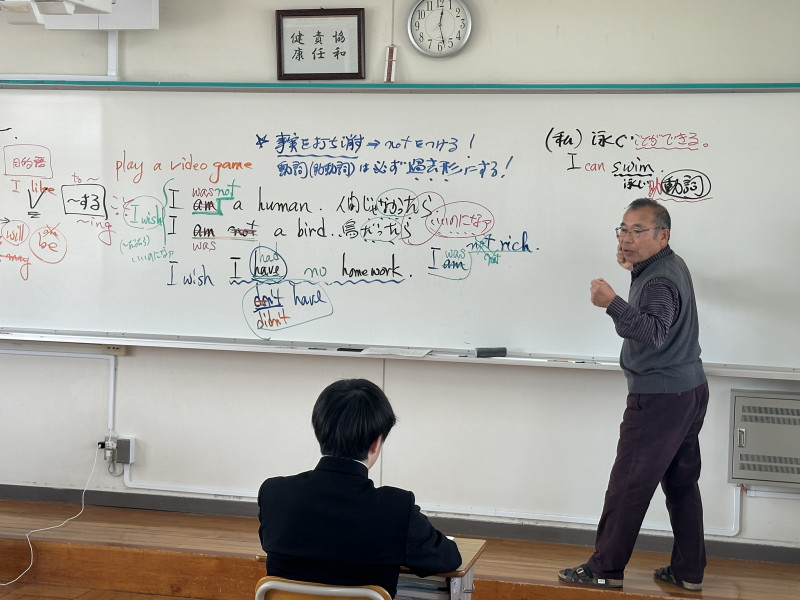 健康 責任 協和
※ 事実を打ち消す → notをつける!
動詞(助動詞)は必ず過去形にする!
(私) 泳ぐことができる。
I can swim.
泳ぐ 助動詞
目的語
I like
to~
~する
~ing
will
be
play a video game
I wish
いいのになァ
was not
I am a human. 人間じゃなかったら
いいのになァ
I am not a bird. 鳥だったら
was
had
I wish I have no homework.
don't have
didn't
was not rich.
I am not